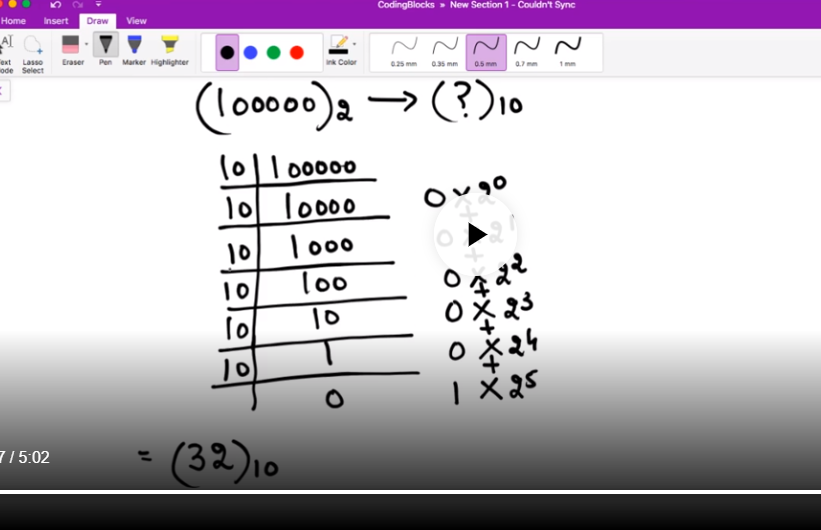 CodingBlocks » New Section 1 - Couldn't Sync
Home Insert Draw View
Lasso Select
Eraser Pen Marker Highlighter
Ink Color
0.25 mm 0.35 mm 0.5 mm 0.7 mm 1 mm
(100000)2 → (?)10
10 100000
0 × 2^0
10 10000
+
0 2^1
+
10 1000
10 100
0 × 2^2
+
10 10
0 × 2^3
+
10 1
0 × 2^4
+
0
1 × 2^5
7 / 5:02
= (32)10